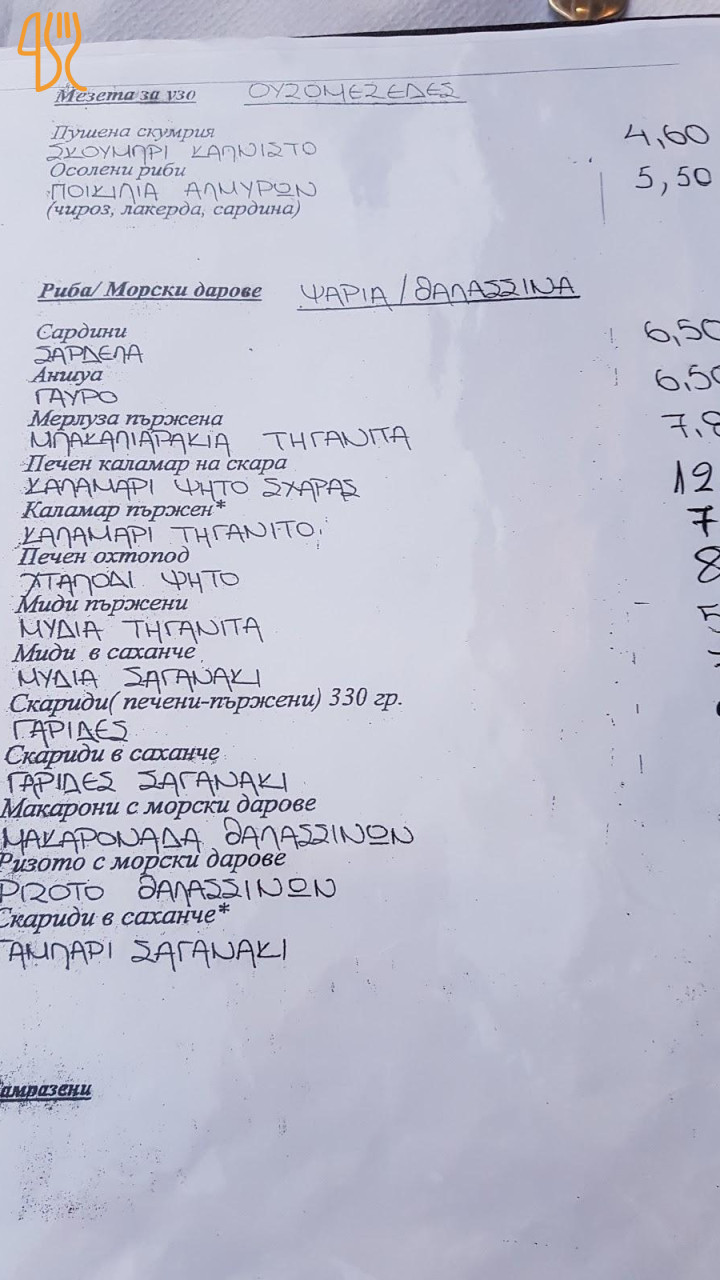 Мезета за узо ΟΥΖΟΜΕΖΕΔΕΣ
Пушена скумрия
ΣΚΟΥΜΠΡΙ ΚΑΠΝΙΣΤΟ 4,60
Осолени риби
ΠΟΙΚΙΛΙΑ ΑΛΜΥΡΩΝ 5,50
(чироз, лакерда, сардина)
Риба/ Морски дарове ΨΑΡΙΑ / ΘΑΛΑΣΣΙΝΑ
Сардини 6,50
ΣΑΡΔΕΛΑ
Аншуа 6,50
ΓΑΥΡΟ
Мерлуза пържена 7,8
ΜΠΑΚΑΛΙΑΡΑΚΙΑ ΤΗΓΑΝΙΤΑ
Печен каламар на скара 12
ΚΑΛΑΜΑΡΙ ΨΗΤΟ ΣΧΑΡΑΣ
Каламар пържен* 7
ΚΑΛΑΜΑΡΙ ΤΗΓΑΝΙΤΟ
Печен охтопод 8
ΧΤΑΠΟΔΙ ΨΗΤΟ
Миди пържени 5
ΜΥΔΙΑ ΤΗΓΑΝΙΤΑ
Миди в саханче
ΜΥΔΙΑ ΣΑΓΑΝΑΚΙ
Скариди( печени-пържени) 330 гр.
ΓΑΡΙΔΕΣ
Скариди в саханче
ΓΑΡΙΔΕΣ ΣΑΓΑΝΑΚΙ
Макарони с морски дарове
ΜΑΚΑΡΟΝΑΔΑ ΘΑΛΑΣΣΙΝΩΝ
Ризото с морски дарове
ΡΙΖΟΤΟ ΘΑΛΑΣΣΙΝΩΝ
Скариди в саханче*
ΓΑΜΠΑΡΙ ΣΑΓΑΝΑΚΙ
амразени